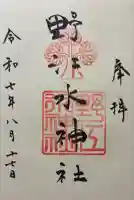 奉拝
野江水神社
令和七年八月十七日